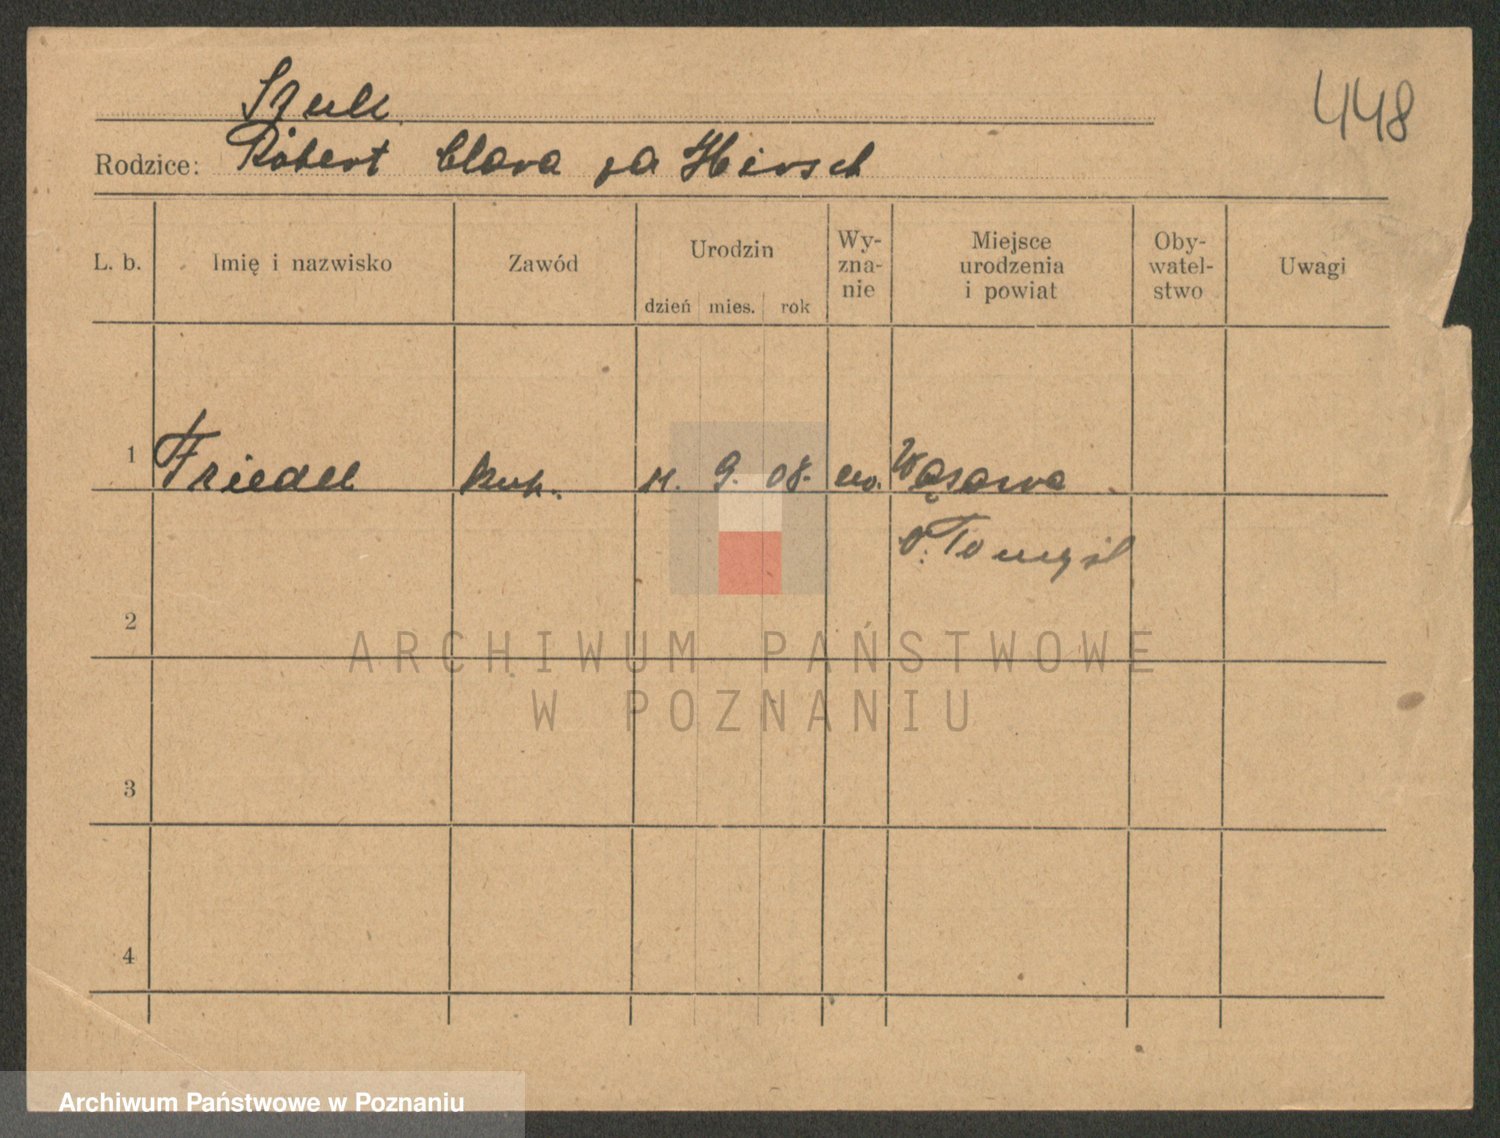 448
Szulc
Rodzice: Robert Clara za Hirsch
L. b. Imię i nazwisko Zawód Urodzin dzień mies. rok Wy-zna-nie Miejsce urodzenia i powiat Oby-watel-stwo Uwagi
1 Friedel 11. 9. 08. ew. Wąsowo
N. Tomyśl
2
ARCHIWUM PAŃSTWOWE
W POZNANIU
3
4
Archiwum Państwowe w Poznaniu